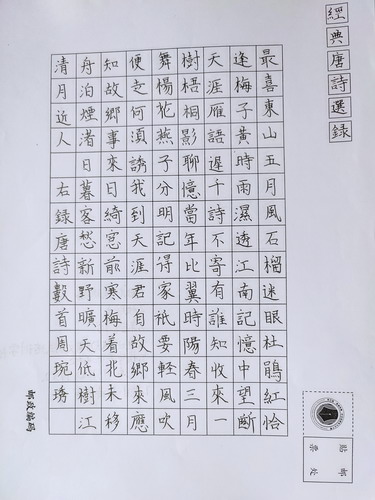 經典唐詩選録
最喜東山五月風石榴迷眼杜鵑紅恰
逢梅子黃時雨濕透江南記憶中望斷
天涯雁語遲千詩不寄有誰知收來一
樹梧桐影聊憶當年比翼時陽春三月
舞楊花燕子分明記得家衹要輕風吹
便走何須誘我到天涯君自故鄉來應
知故鄉事來日綺窓前寒梅着花未移
舟泊煙渚日暮客愁新野曠天低樹江
清月近人 右錄唐詩數首周琬
貼郵
票處
郵政編局